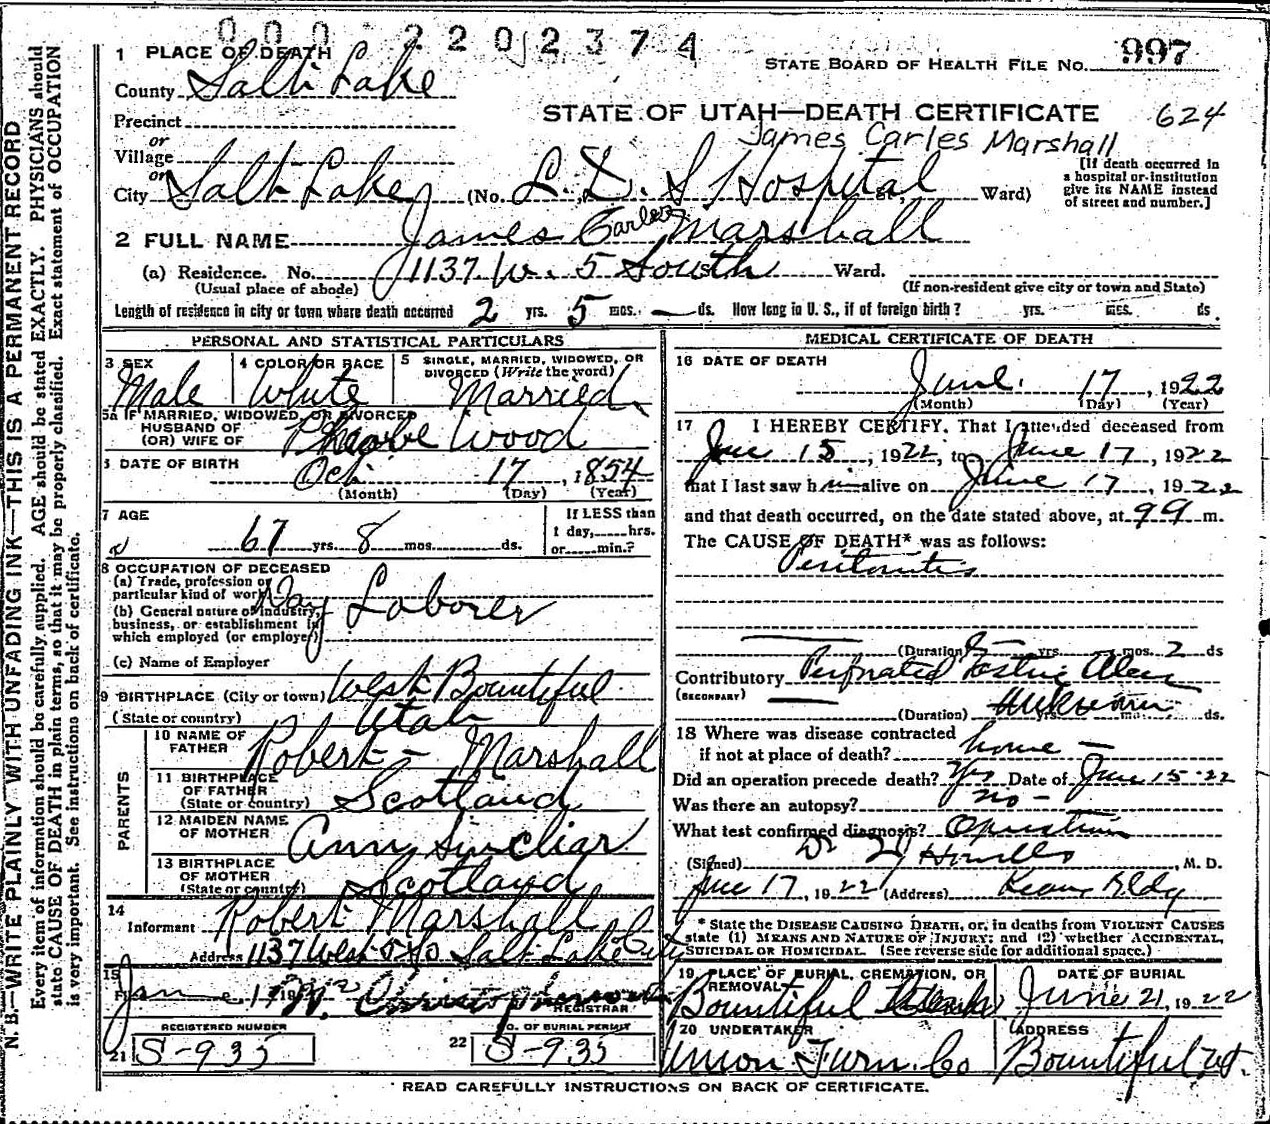 000 2202374
1 PLACE OF DEATH
STATE BOARD OF HEALTH FILE No. 997
County Salt Lake
STATE OF UTAH—DEATH CERTIFICATE 624
Precinct
James Carles Marshall
or
Village
or
City Salt Lake (No. L. D. S Hospital St., Ward)
[If death occurred in
a hospital or institution
give its NAME instead
of street and number.]
2 FULL NAME James Carles Marshall
(a) Residence. No. 1137 W. 5 South Ward.
(Usual place of abode)
(If non-resident give city or town and State)
Length of residence in city or town where death occurred 2 yrs. 5 mos. — ds. How long in U. S., if of foreign birth? yrs. mos. ds.
PERSONAL AND STATISTICAL PARTICULARS
3 SEX
Male
4 COLOR OR RACE
White
5 SINGLE, MARRIED, WIDOWED, OR
DIVORCED (Write the word)
Married
5a IF MARRIED, WIDOWED, OR DIVORCED
HUSBAND OF
(OR) WIFE OF
Phoebe Wood
6 DATE OF BIRTH
Oct. 17, 1854
(Month) (Day) (Year)
7 AGE
67 yrs. 8 mos. ds.
If LESS than
1 day, hrs.
or min.?
8 OCCUPATION OF DECEASED
(a) Trade, profession or
particular kind of work Day Laborer
(b) General nature of industry,
business, or establishment in
which employed (or employer)
(c) Name of Employer
9 BIRTHPLACE (City or town) West Bountiful
(State or country) Utah
PARENTS
10 NAME OF
FATHER Robert - Marshall
11 BIRTHPLACE
OF FATHER
(State or country) Scotland
12 MAIDEN NAME
OF MOTHER Ann Sincliar
13 BIRTHPLACE
OF MOTHER
(State or country) Scotland
14
Informant Robert Marshall
Address 1137 West 5 So Salt Lake City
15
REGISTRAR
REGISTERED NUMBER
21 S-935
NO. OF BURIAL PERMIT
22 S-935
MEDICAL CERTIFICATE OF DEATH
16 DATE OF DEATH
June 17, 1922
(Month) (Day) (Year)
17 I HEREBY CERTIFY, That I attended deceased from
June 15, 1922, to June 17, 1922
that I last saw him alive on June 17, 1922
and that death occurred, on the date stated above, at m.
The CAUSE OF DEATH* was as follows:
Peritonitis
(Duration) yrs. mos. 2 ds
Contributory Perforated Gastric Ulcer
(SECONDARY)
(Duration) Unknown yrs. mos. ds.
18 Where was disease contracted
if not at place of death? home —
Did an operation precede death? Yes Date of June 15-22
Was there an autopsy? no -
What test confirmed diagnosis? Operation
(Signed) M. D.
June 17, 1922 (Address) Kearns Bldg
* State the DISEASE CAUSING DEATH, or, in deaths from VIOLENT CAUSES
state (1) MEANS AND NATURE OF INJURY; and (2) whether ACCIDENTAL,
SUICIDAL OR HOMICIDAL. (See reverse side for additional space.)
19 PLACE OF BURIAL, CREMATION, OR
REMOVAL
Bountiful
DATE OF BURIAL
June 21, 1922
20 UNDERTAKER
Union Furn. Co
ADDRESS
Bountiful Ut.
READ CAREFULLY INSTRUCTIONS ON BACK OF CERTIFICATE.
N. B.—WRITE PLAINLY WITH UNFADING INK—THIS IS A PERMANENT RECORD
Every item of information should be carefully supplied. AGE should be stated EXACTLY. PHYSICIANS should
state CAUSE OF DEATH in plain terms, so that it may be properly classified. Exact statement of OCCUPATION
is very important. See instructions on back of certificate.